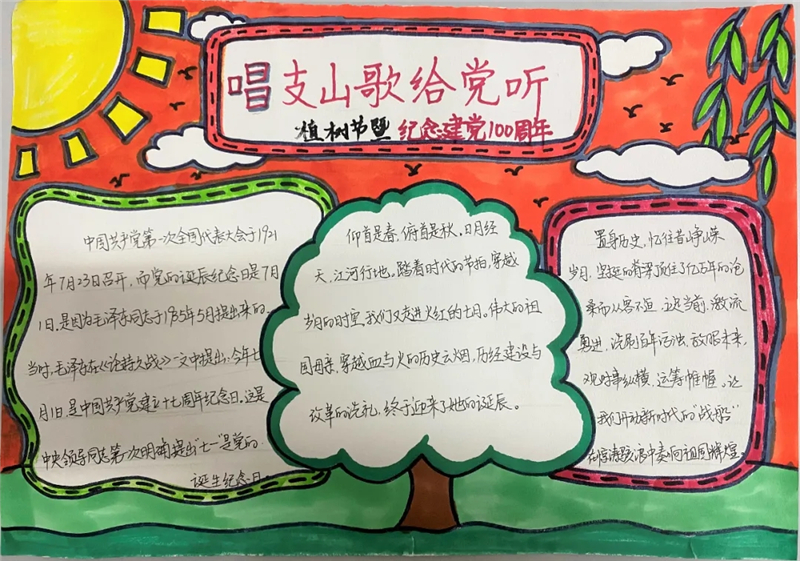 唱支山歌给党听
植树节暨 纪念建党100周年
中国共产党第一次全国代表大会于1921
年7月23日召开，而党的诞辰纪念日是7月
1日。是因为毛泽东同志于1935年5月提出来的。
当时，毛泽东《论持久战》一文中提出：今年七
月1日，是中国共产党建立十七周年纪念日。这是
中央领导同志第一次明确提出"七一"是党的
诞生纪念日。
仰首是春、俯首是秋。日月经
天，江河行地。踏着时代的节拍，穿越
岁月的时空，我们又走进火红的七月。伟大的祖
国母亲，穿越血与火的历史云烟，历经建设与
改革的洗礼，终于迎来了她的诞辰。
置身历史，忆往昔峥嵘
岁月，坚挺的脊梁顶住了亿万年的沧
桑而从容不迫。立足当前，激流
勇进，洗刷百年污浊。放眼未来，
观时事纵横，运筹帷幄。让
我们开动新时代的"战船"
在惊涛骇浪中奏向祖国辉煌。